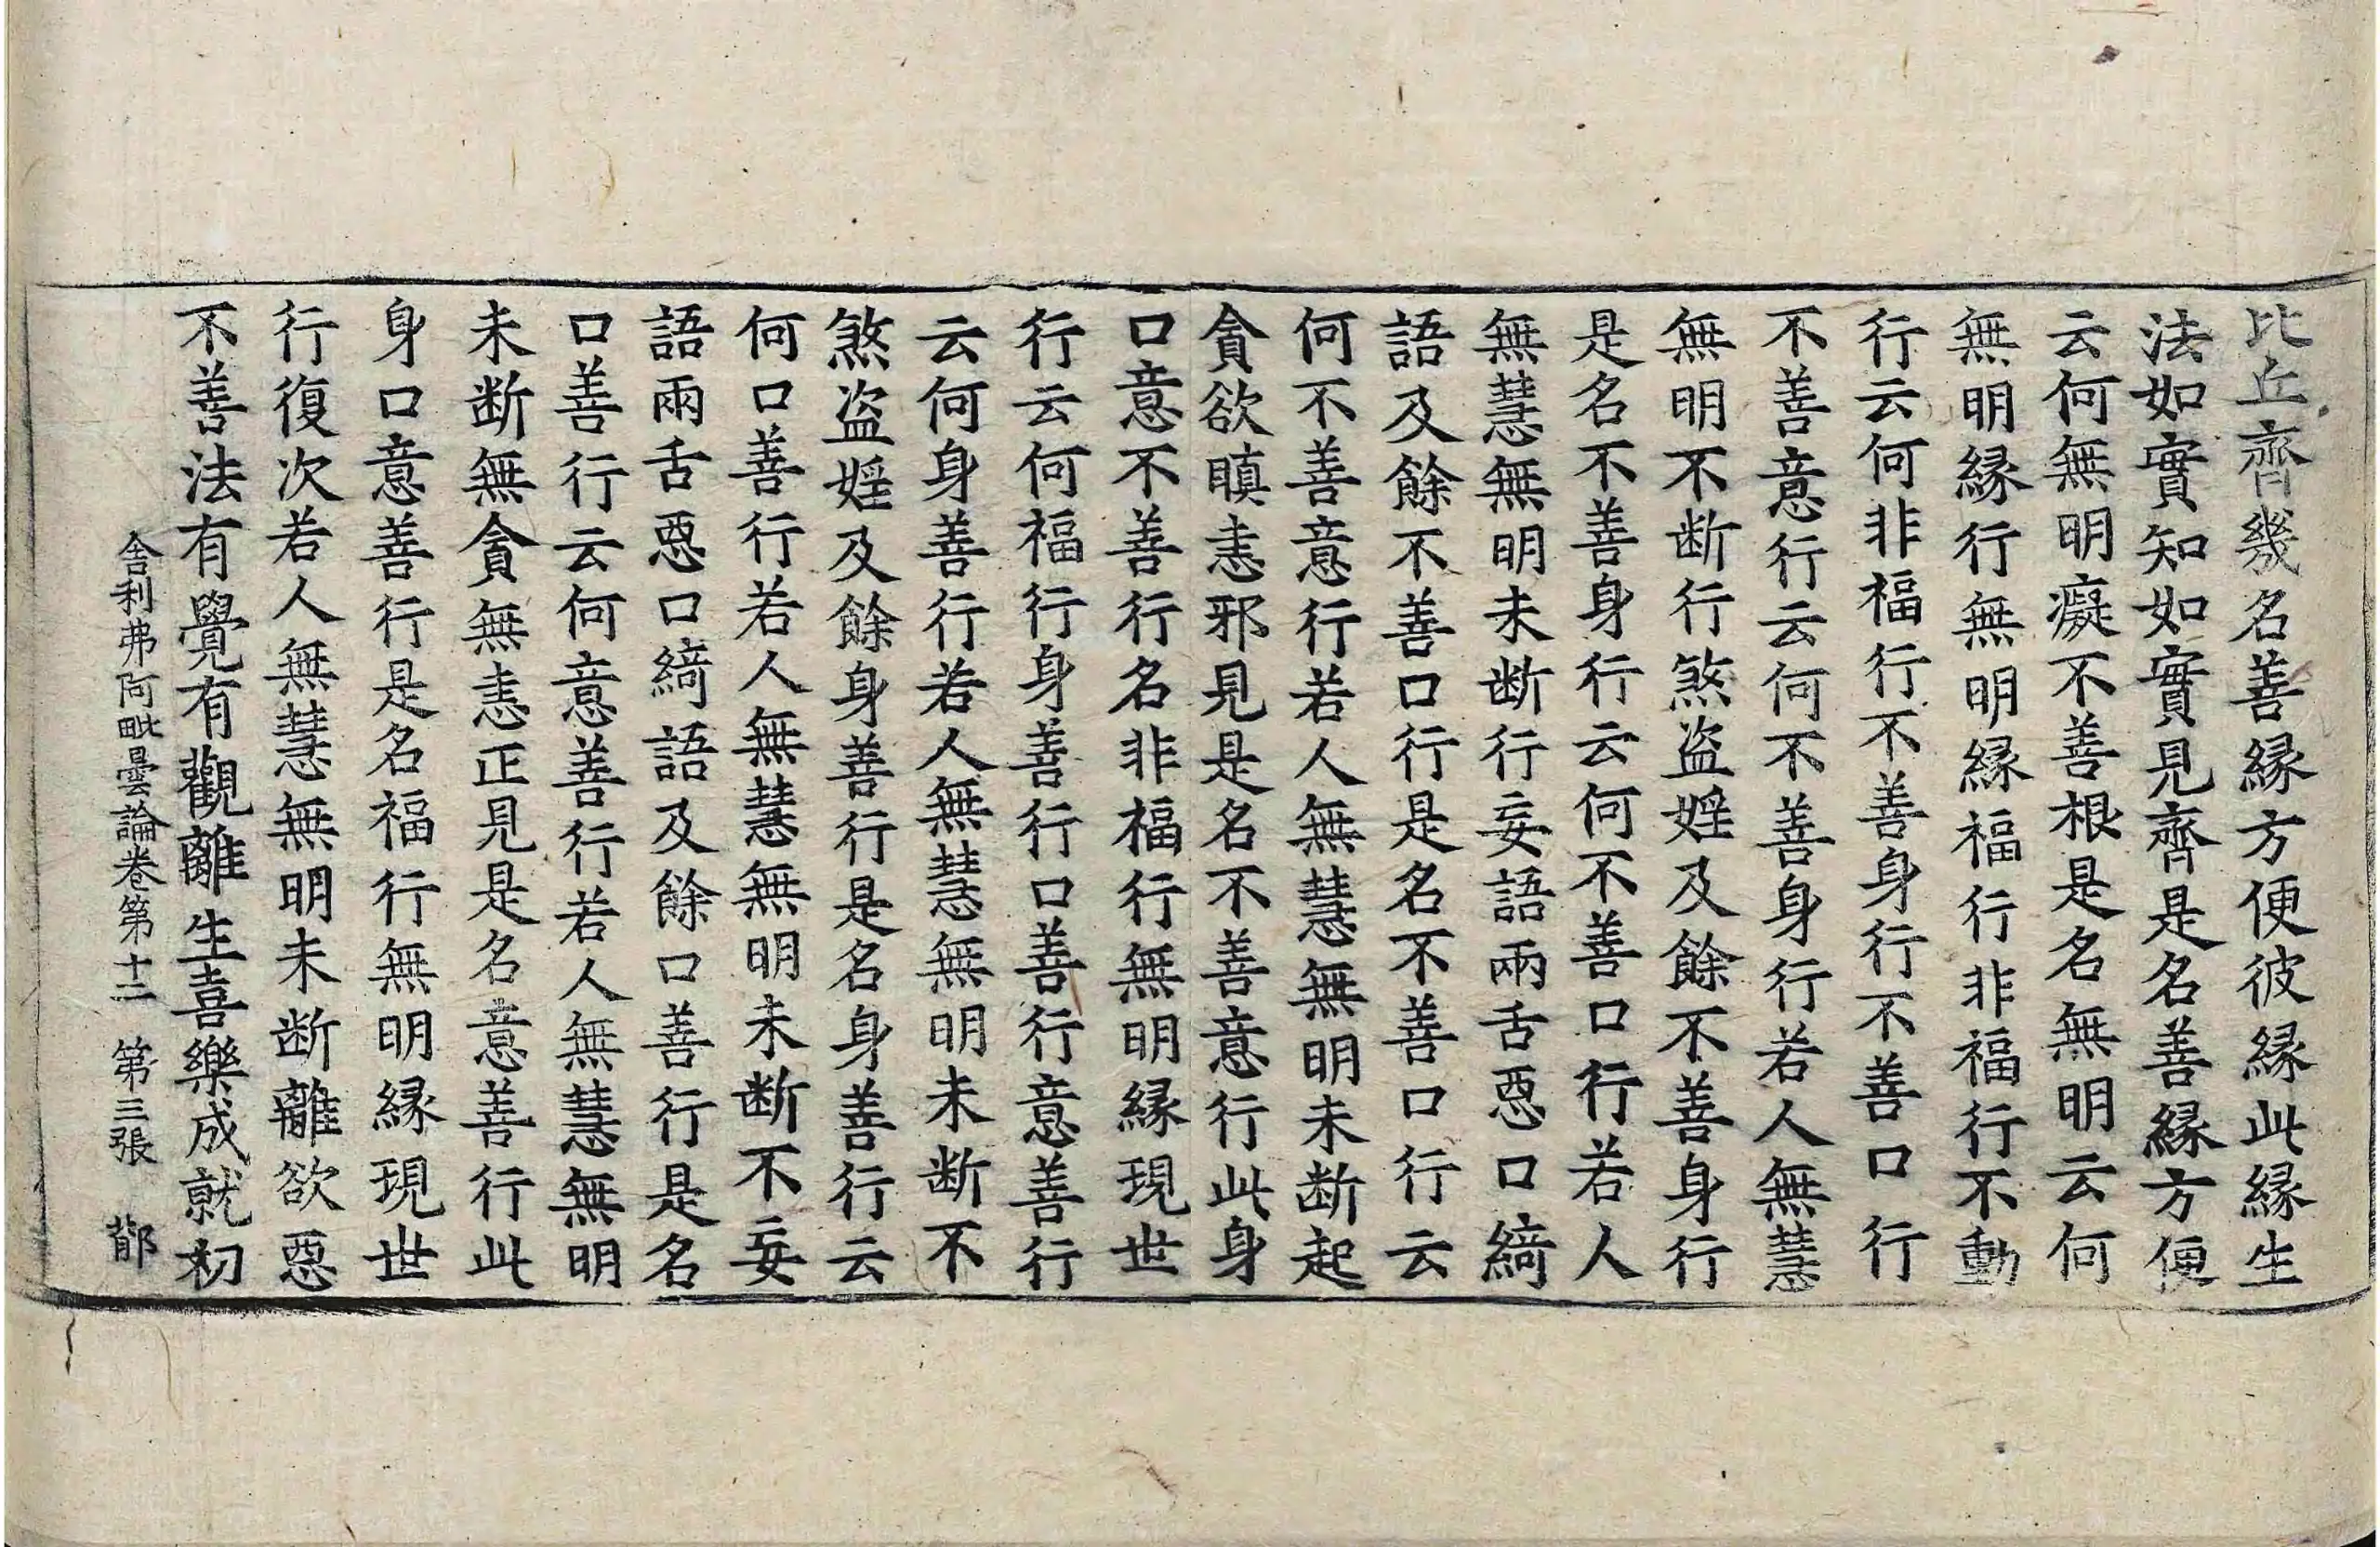 比丘齊幾名善縁方便彼縁此縁生
法如實知如實見齊是名善縁方便
云何無明癡不善根是名無明云何
無明縁行無明縁福行非福行不動
行云何非福行不善身行不善口行
不善意行云何不善身行若人無慧
無明不断行煞盜婬及餘不善身行
是名不善身行云何不善口行若人
無慧無明未断行妄語兩舌惡口綺
語及餘不善口行是名不善口行云
何不善意行若人無慧無明未断起
貪欲瞋恚邪見是名不善意行此身
口意不善行名非福行無明縁現世
行云何福行身善行口善行意善行
云何身善行若人無慧無明未断不
煞盜婬及餘身善行是名身善行云
何口善行若人無慧無明未断不妄
語兩舌惡口綺語及餘口善行是名
口善行云何意善行若人無慧無明
未断無貪無恚正見是名意善行此
身口意善行是名福行無明縁現世
行復次若人無慧無明未断離欲惡
不善法有覺有觀離生喜樂成就初
舍利弗阿毗曇論卷第十二 第三張 鄁